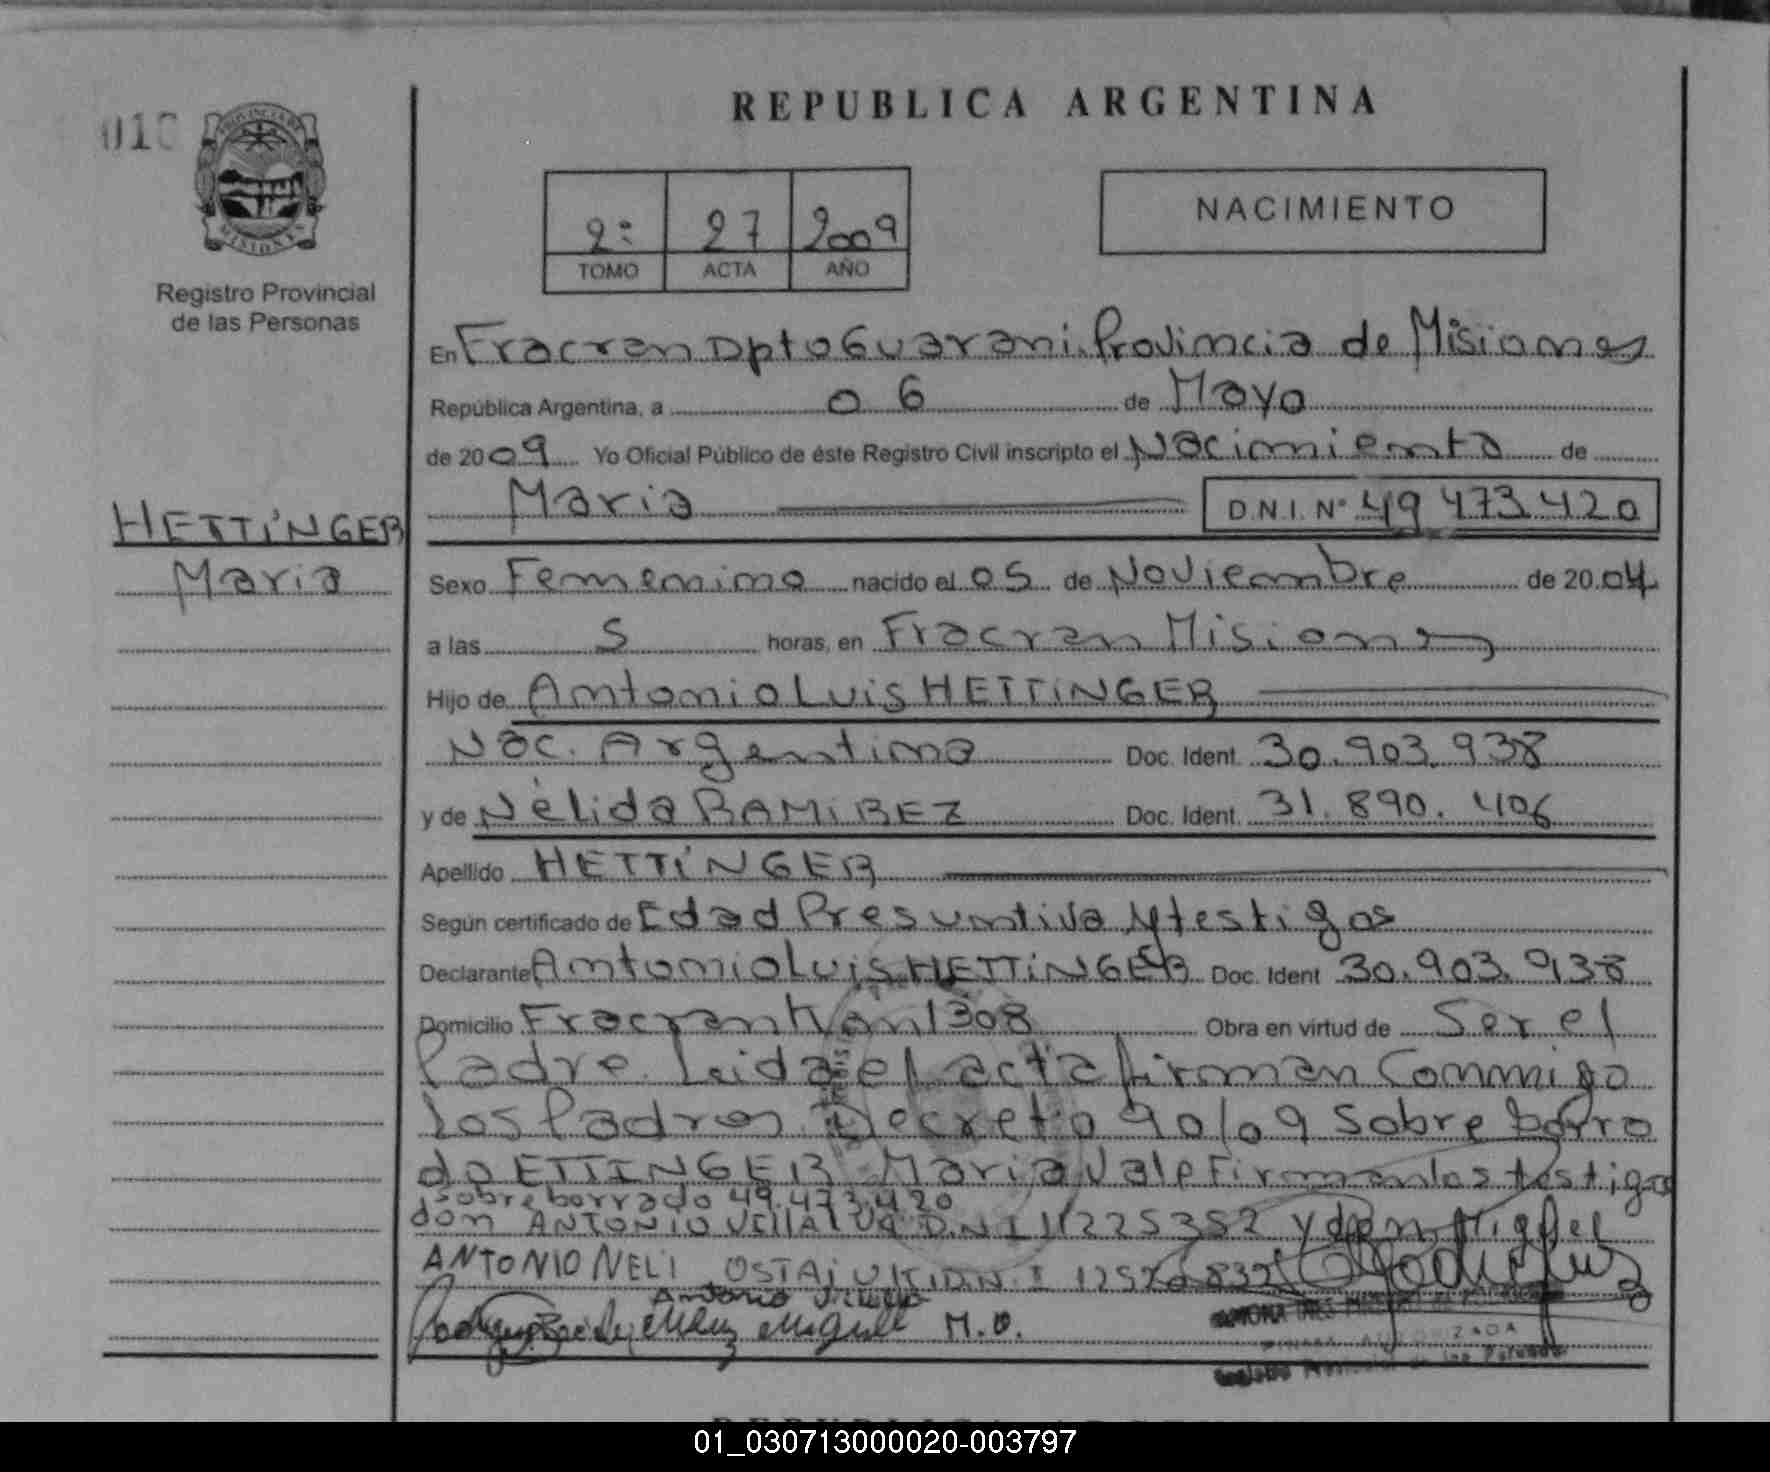 REPUBLICA ARGENTINA
010
PROVINCIA DE
MISIONES
Registro Provincial
de las Personas
2: 27 2009
TOMO ACTA AÑO
NACIMIENTO
En Fracran Dpto Guarani. Provincia de Misiones
República Argentina, a 06 de Mayo
de 2009 Yo Oficial Público de éste Registro Civil inscripto el Nacimiento de
Maria D.N.I. Nº 49 473 420
HETTINGER
Maria
Sexo Femenino nacido el 05 de Noviembre de 2004
a las 5 horas, en Fracran Misiones
Hijo de Antonio Luis HETTINGER
Nac. Argentina Doc. Ident. 30.903.938
y de Nélida RAMIREZ Doc. Ident. 31.890.406
Apellido HETTINGER
Según certificado de Edad Presuntiva y testigos
Declarante Antonio Luis HETTINGER Doc. Ident 30.903.938
Domicilio Fracran Km 1308 Obra en virtud de Ser el
Padre. Leida el acta firman Conmigo
los Padres. Decreto 90/09 Sobre borra
do ETTINGER Maria Vale Firman los testigos
sobre borrado 49.473.420
don ANTONIO VILLALVA D.N.I 11225352 y don Miguel
ANTONIO NELI D.N.I
Antonio
Miguel M.O.
AUTORIZADA
Registro Provincial de las Personas
REPUBLICA ARGENTINA
01_030713000020-003797